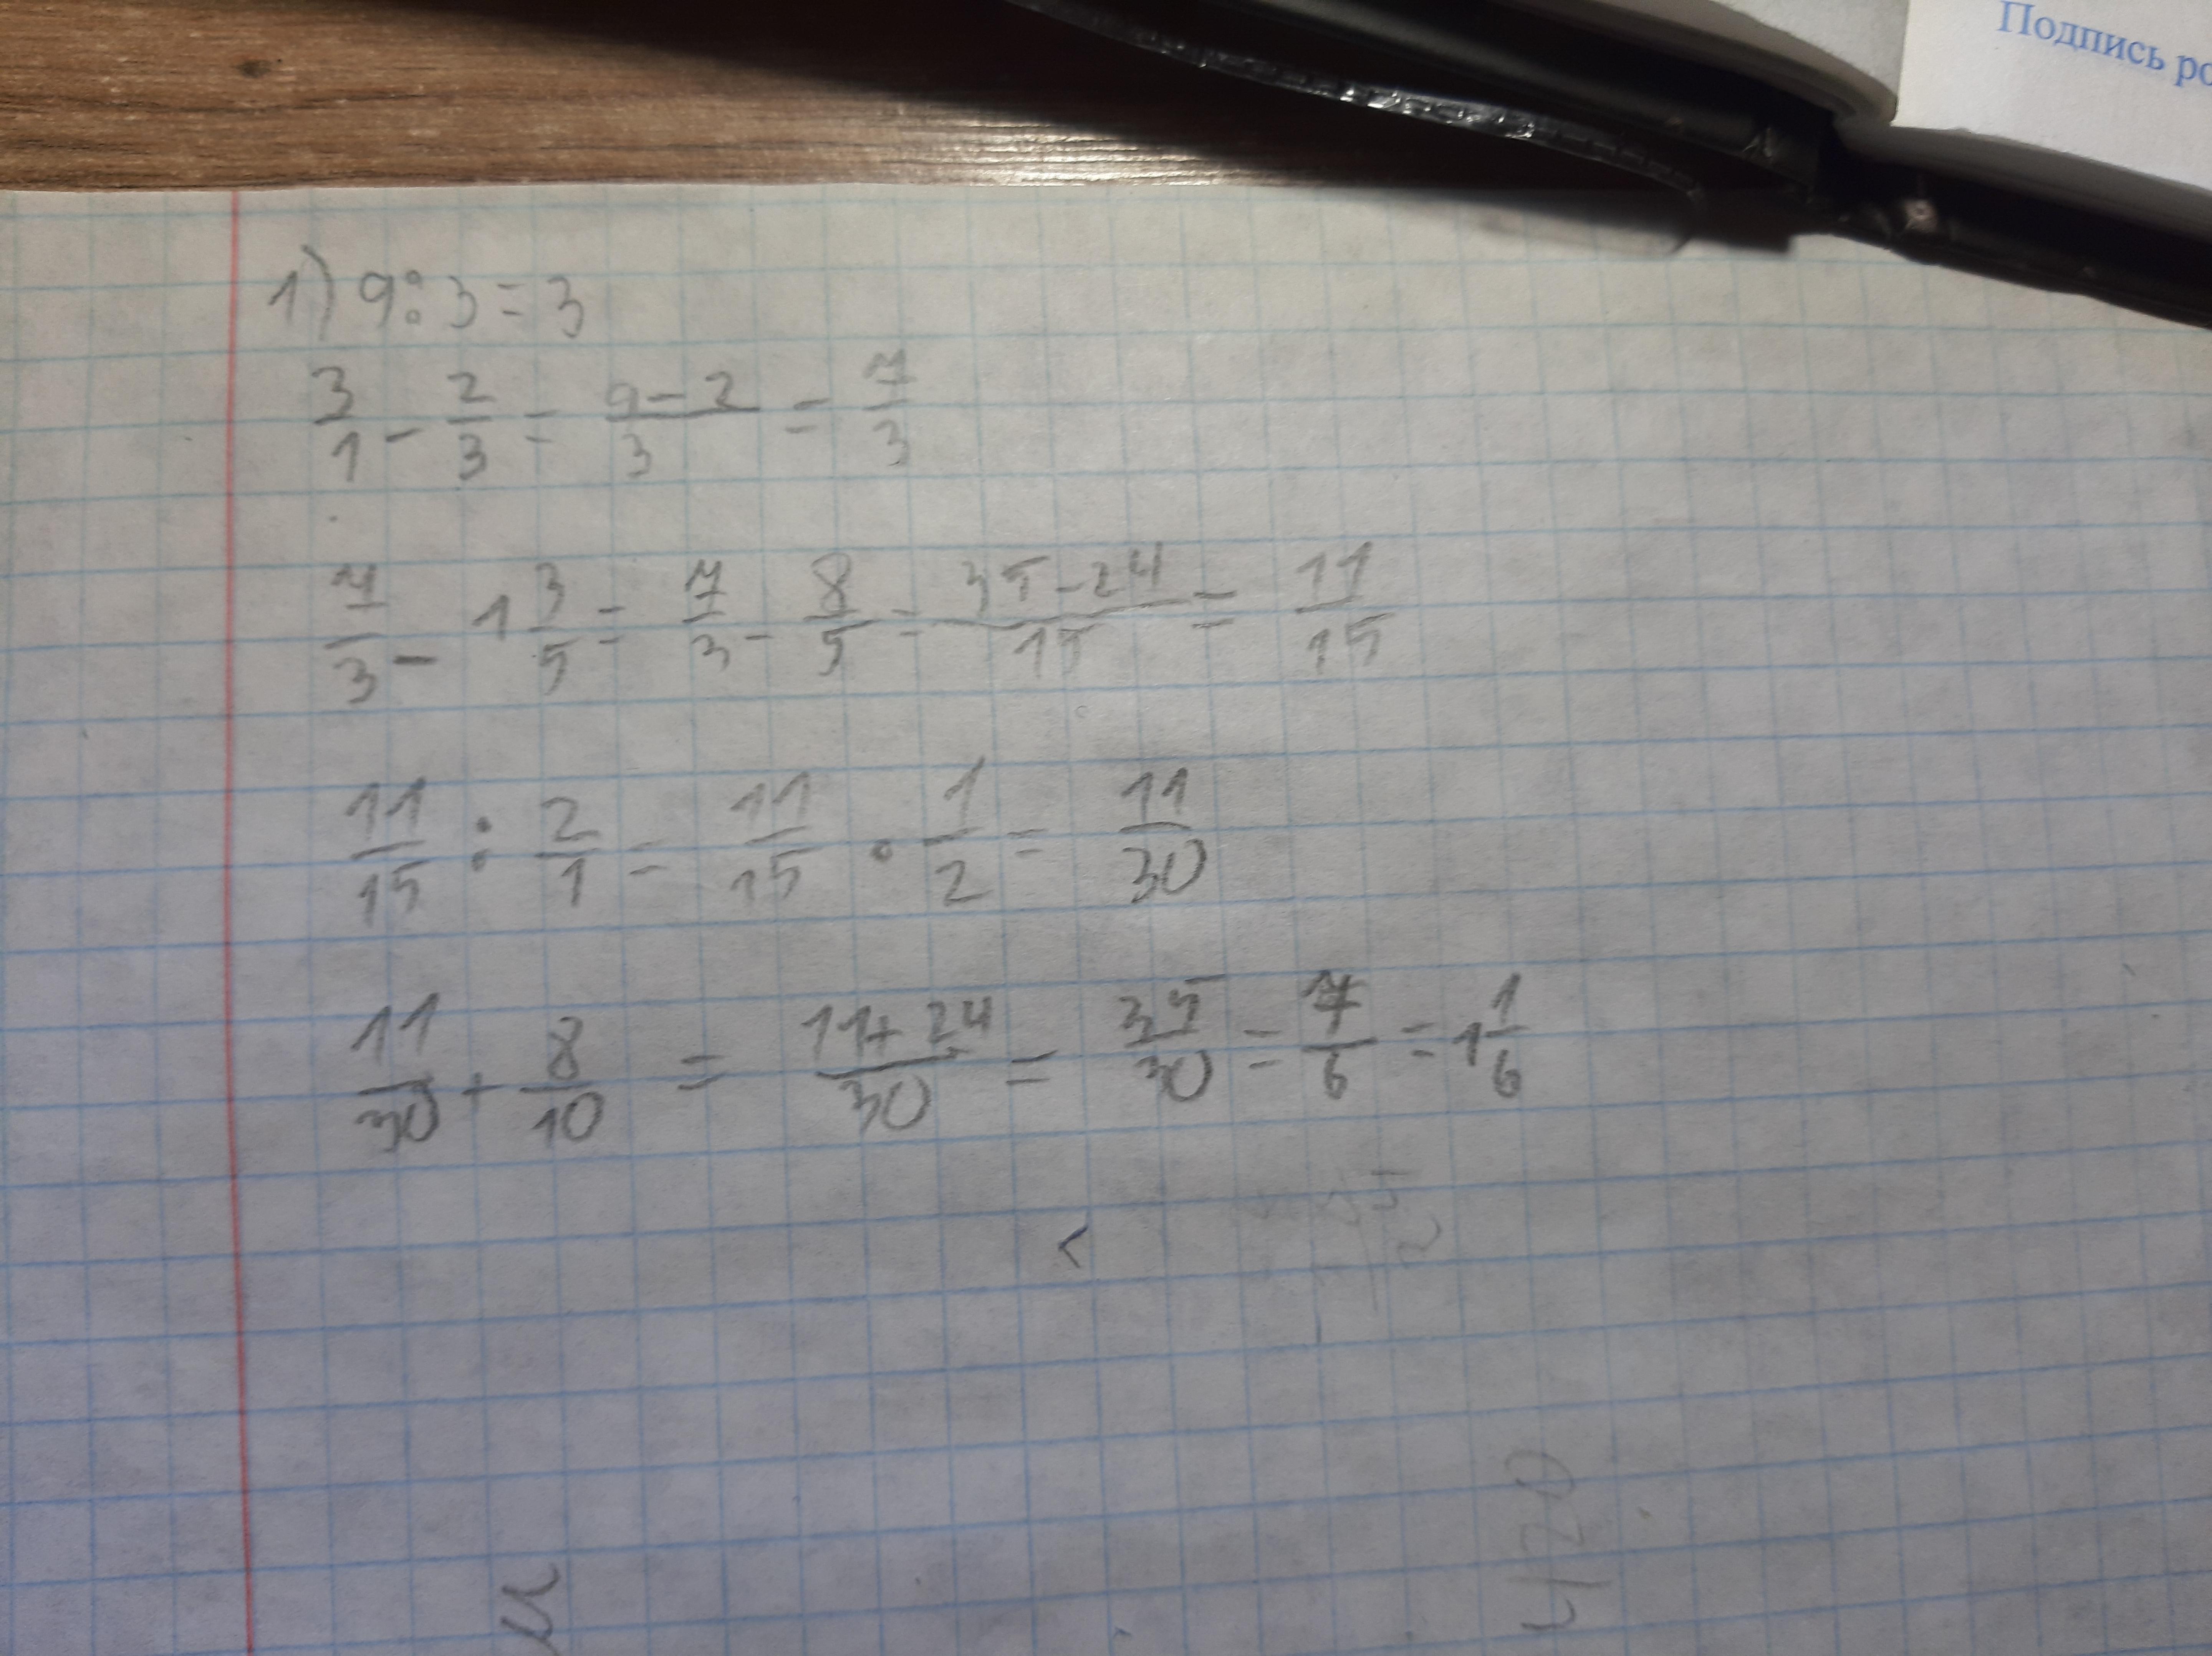 Подпись ро
1) 9 : 3 = 3
3/1 - 2/3 = (9-2)/3 = 7/3
7/3 - 1 3/5 = 7/3 - 8/5 = (35-24)/15 = 11/15
11/15 : 2/1 = 11/15 · 1/2 = 11/30
11/30 + 8/10 = (11+24)/30 = 35/30 = 7/6 = 1 1/6